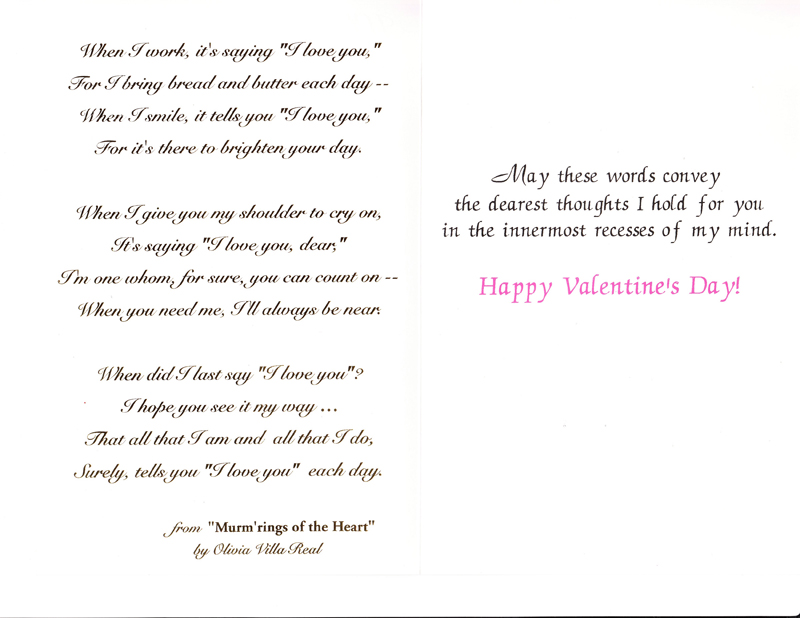 When I work, it's saying "I love you,"
For I bring bread and butter each day --
When I smile, it tells you "I love you,"
For it's there to brighten your day.
When I give you my shoulder to cry on,
It's saying "I love you, dear,"
I'm one whom, for sure, you can count on --
When you need me, I'll always be near.
When did I last say "I love you"?
I hope you see it my way ...
That all that I am and all that I do,
Surely, tells you "I love you" each day.
from "Murm'rings of the Heart"
by Olivia Villa Real
May these words convey
the dearest thoughts I hold for you
in the innermost recesses of my mind.
Happy Valentine's Day!